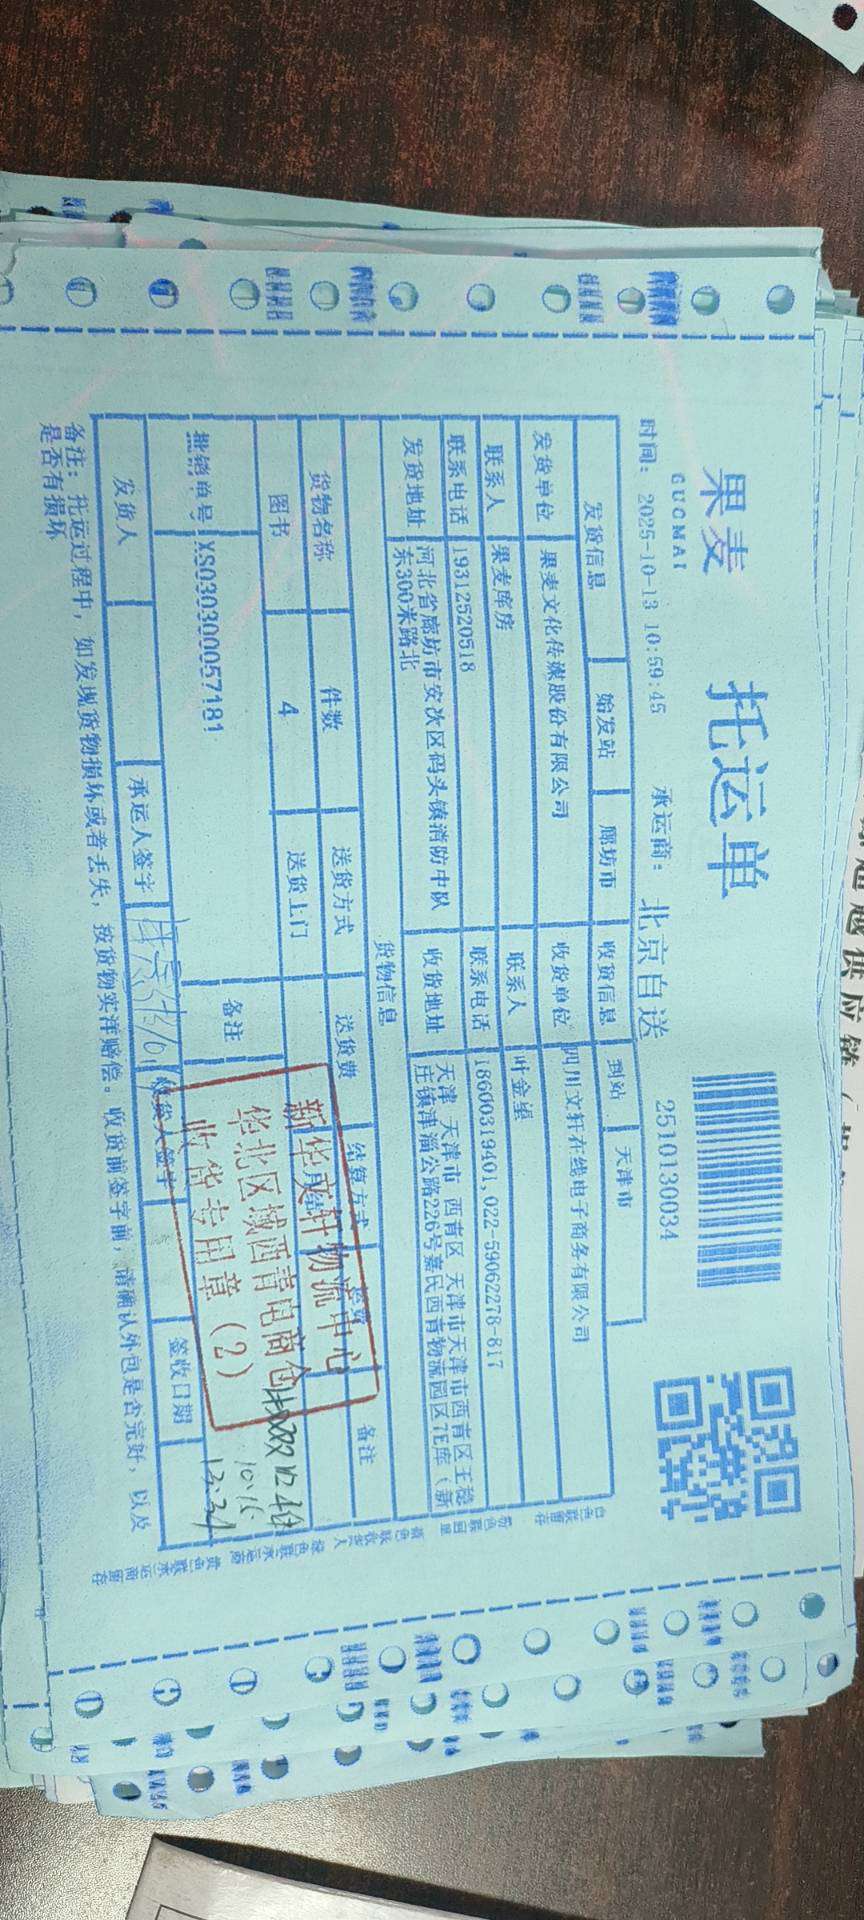 果麦
GUOMAI
托运单
2510130034
时间：2025-10-13 10:59:45
承运商：北京自送
发货信息 始发站 廊坊市 收货信息 到站 天津市
发货单位 果麦文化传媒股份有限公司 收货单位 四川文轩在线电子商务有限公司
联系人 果麦库房 联系人 叶金星
联系电话 19312520518 联系电话 18600319401,022-59062278-817
发货地址 河北省廊坊市安次区码头镇消防中队
东300米路北
收货地址 天津 天津市 西青区 天津市天津市西青区王稳
庄镇津淄公路226号嘉民西青物流园区7E库（新
货物信息
货物名称 件数 送货方式 送货费 结算方式 备注
图书 4 送货上门
批销单号 XS030300057181 备注
发货人 承运人签字 收货人签字 签收日期
新华文轩物流中心
华北区域西青电商仓
收货专用章（2）
13:31
备注：托运过程中，如发现货物损坏或者丢失，按货物实洋赔偿。收货前签字前，请确认外包是否完好，以及
是否有损坏
白色联留存
粉色联回单
绿色联承运商
黄色联承运商留存